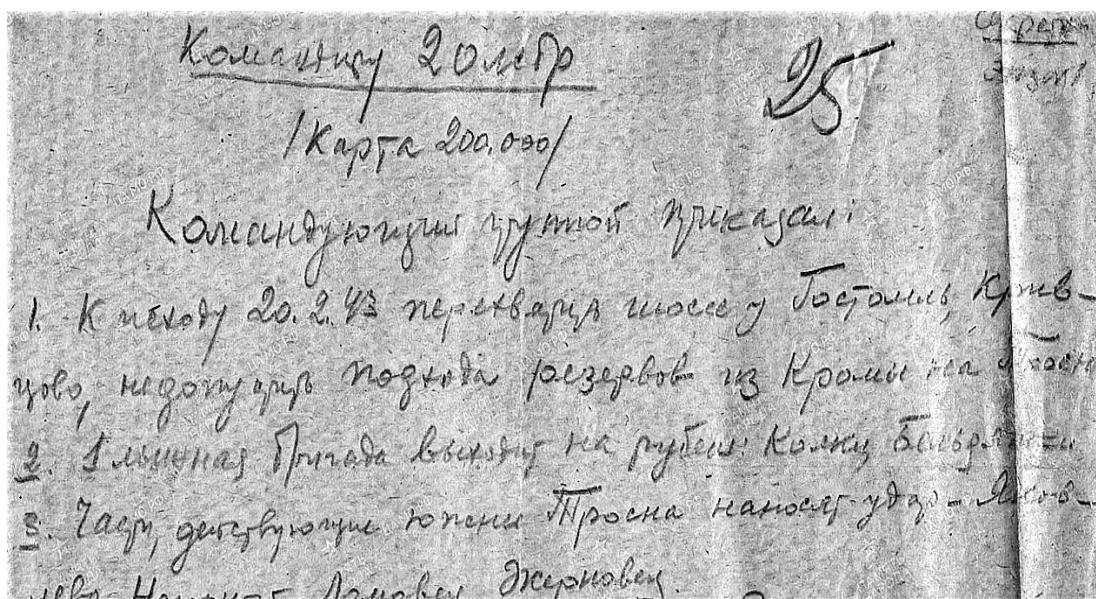 Командиру 20 лсбр
25
/Карта 200.000/
Командующий группой приказал:
1. К исходу 20.2.43 перехватить шоссе у Гостомль, Крив-
цово, недопустить подхода резервов из Кромы на
2. 1 лыжная бригада выходит на рубеж: Колки,
3. Части, действующие южнее Тросна наносят удар –
Ломовец, Жерновец